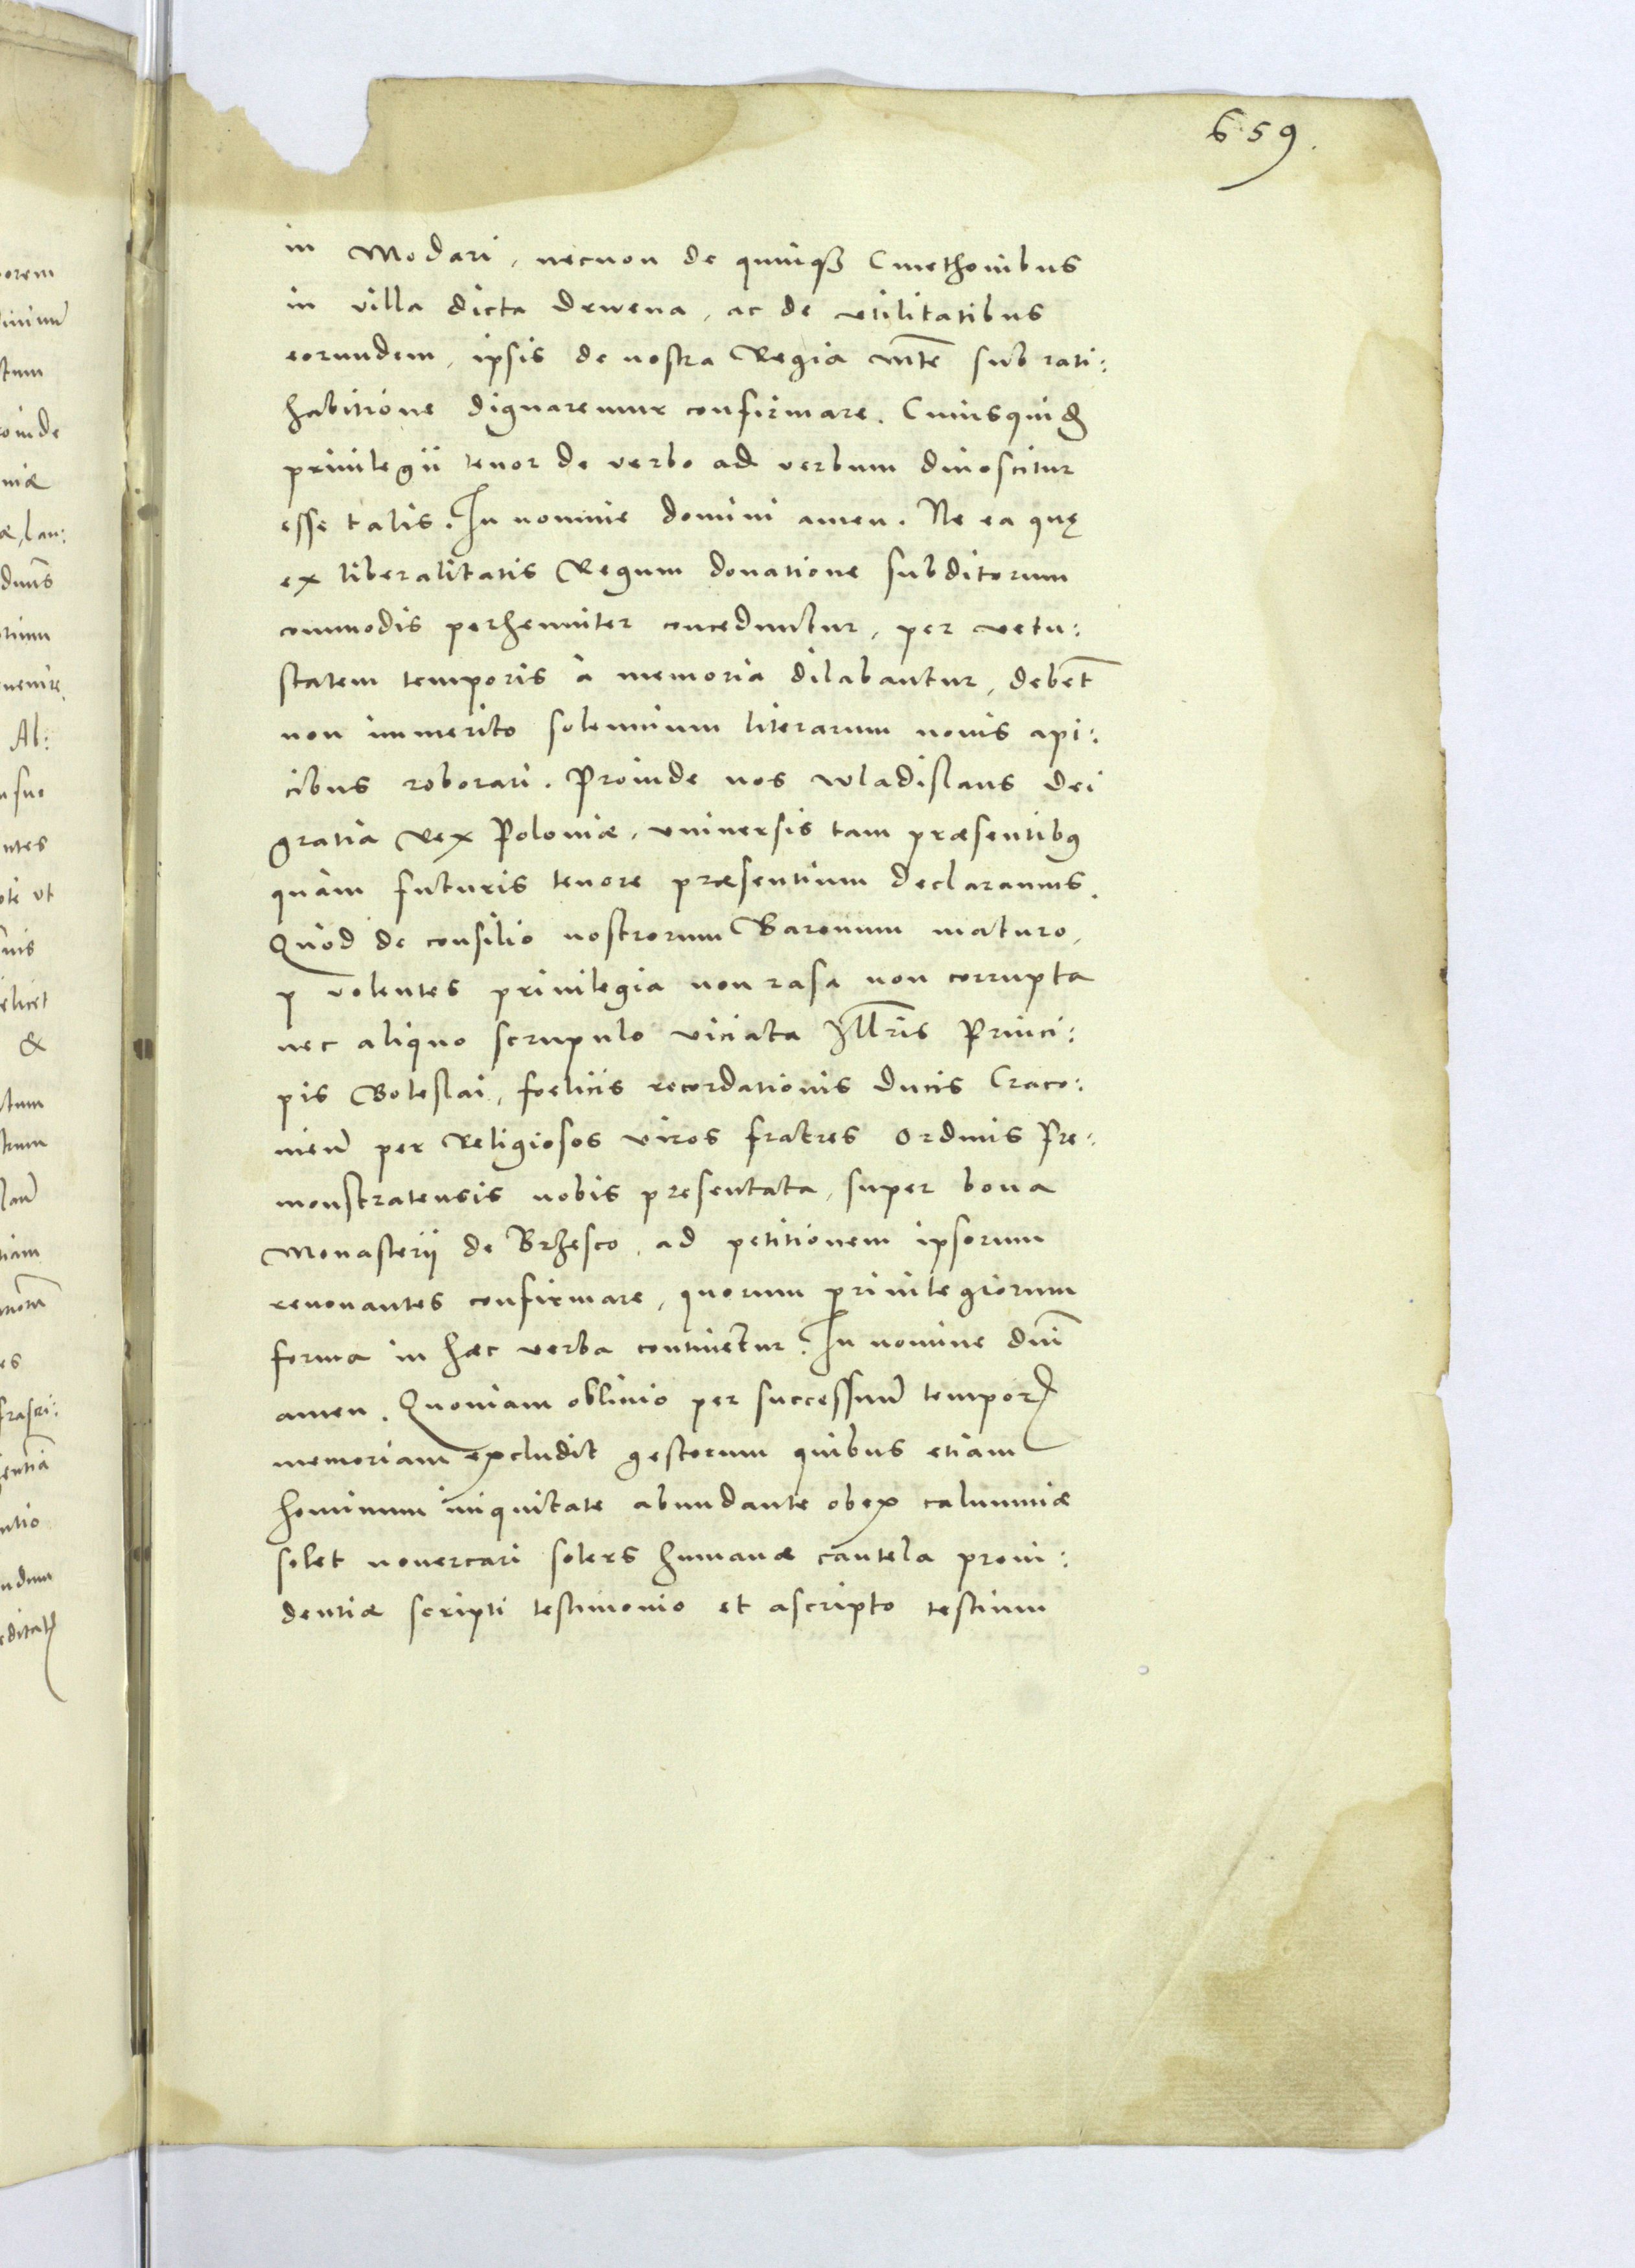 659.
in Modari, necnon de quinqꝫ Cmethonibus
in villa dicta Drwena, ac de vtilitatibus
eorundem, ipsis de nostra Regia mt̃e sub rati:
habitione dignaremur confirmare. Cuiusquid̃
priuilegii tenor de verbo ad verbum dinoscitur
esse talis. In nomine domini amen. Ne ea quę
ex liberalitatis Regum donatione subditorum
commodis perhenniter conceduntur, per vetu:
statem temporis à memoria dilabantur, debẽt
non immerito solennium literarum nouis api:
cibus roborari. Proinde nos wladislaus dei
gratia rex Poloniæ, vniuersis tam præsentibꝰ
quàm futuris tenore præsentium declaramus.
Quòd de consilio nostrorum Baronum maturo,
p volentes priuilegia non rasa non corrupta
nec aliquo scrupulo viciata Illr̃is Princi:
pis Boleslai, foelicis recordationis ducis Craco:
uieñ per Religiosos viros fratres ordinis Pre:
monstratensis nobis presentata, super bona
Monasterij de Brzesco, ad petitionem ipsorum
renouantes confirmare, quorum priuilegiorum
forma in hæc verba continetur. In nomine dñi
amen. Quoniam obliuio per successum̃ tempoꝝ
memoriam excludit gestorum quibus etiam
hominum iniquitate abundante obex calumniæ
solet nouercari solers humanæ cautela proui:
dentiæ scripti testimonio et ascripto testium